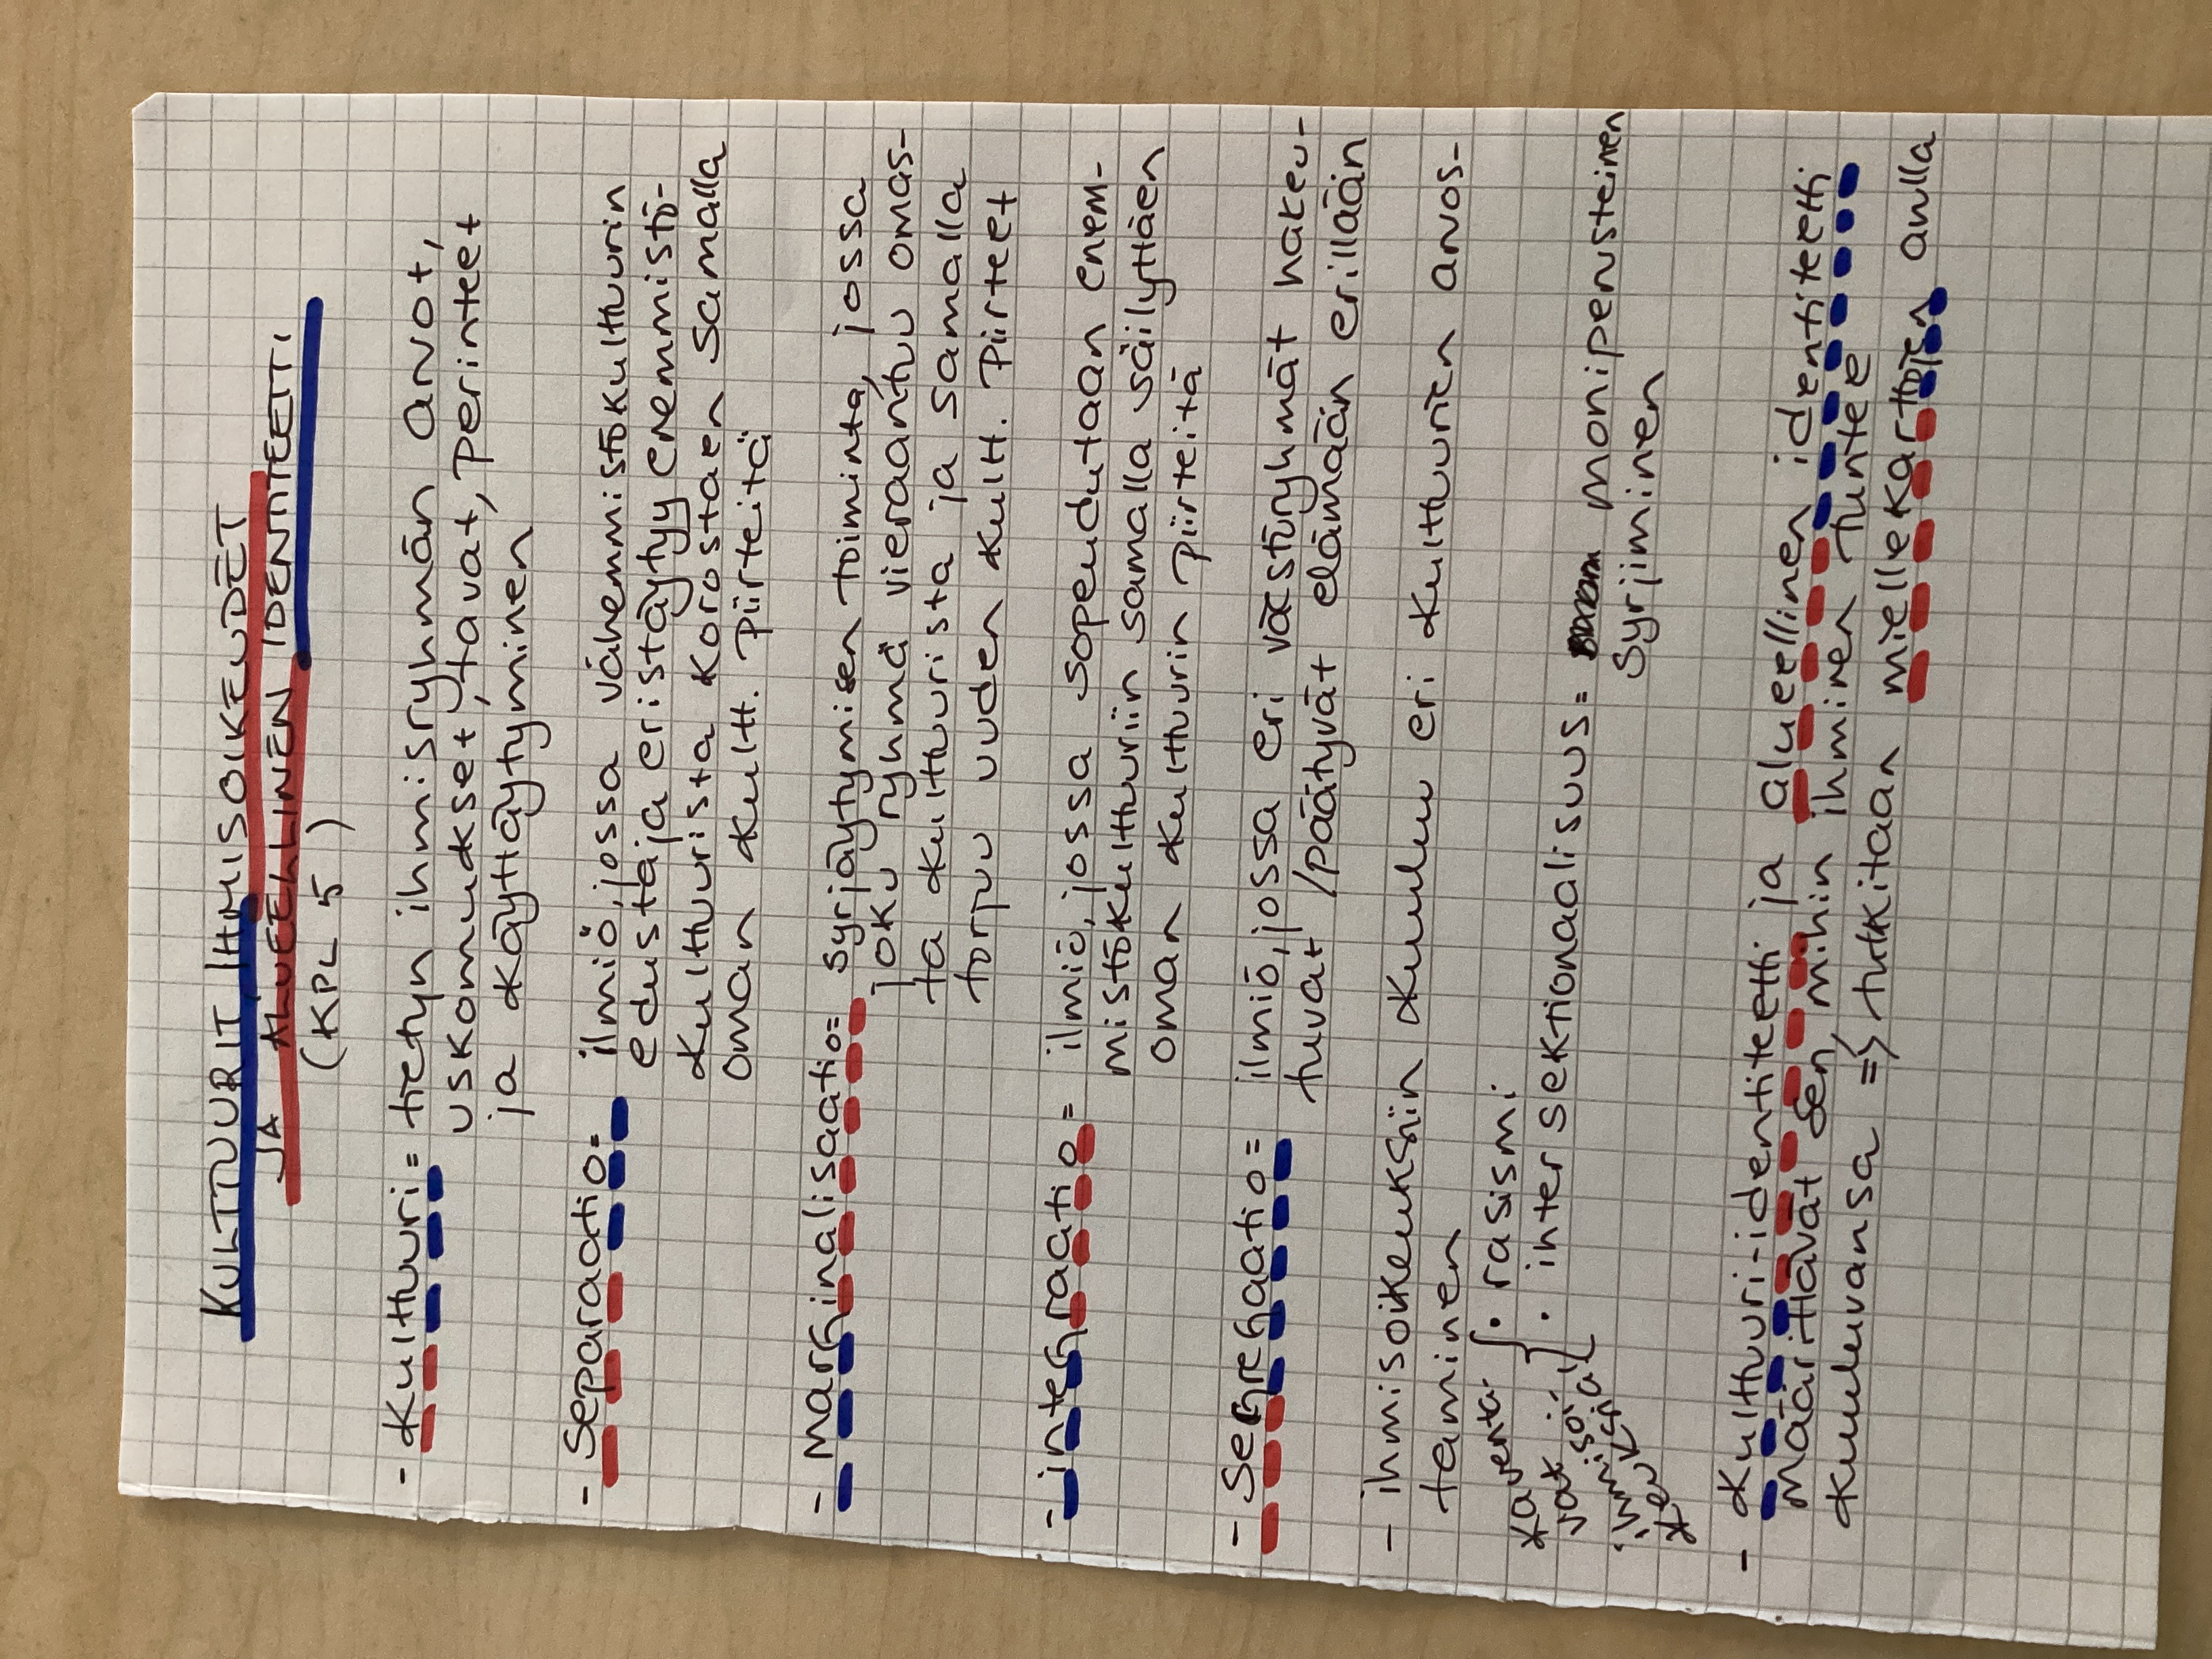 KULTTUURIT, IHMISOIKEUDET
JA ALUEELLINEN IDENTITEETTI
(KPL 5)
- Kulttuuri = tietyn ihmisryhmän arvot,
uskomukset, tavat, perinteet
ja käyttäytyminen
- Separaatio = ilmiö, jossa vähemmistökulttuurin
edustaja eristäytyy enemmistö-
kulttuurista korostaen samalla
oman kultt. piirteitä
- marginalisaatio = syrjäytymisen toiminta, jossa
joku ryhmä vieraantuu omas-
ta kulttuurista ja samalla
torjuu uuden kultt. piirteet
- integraatio = ilmiö, jossa sopeudutaan enem-
mistökulttuuriin samalla säilyttäen
oman kulttuurin piirteitä
- Segregaatio = ilmiö, jossa eri väestöryhmät hakeu-
tuvat /päätyvät elämään erillään
- ihmisoikeuksiin kuuluu eri kulttuurien arvos-
taminen
kaventa-
vat
ihmisoi-
keuksia
• rasismi
• intersektionaalisuus = moniperusteinen
syrjiminen
- kulttuuri-identiteetti ja alueellinen identiteetti
määrittävät sen, mihin ihminen tuntee
kuuluvansa => tutkitaan miellekarttojen avulla